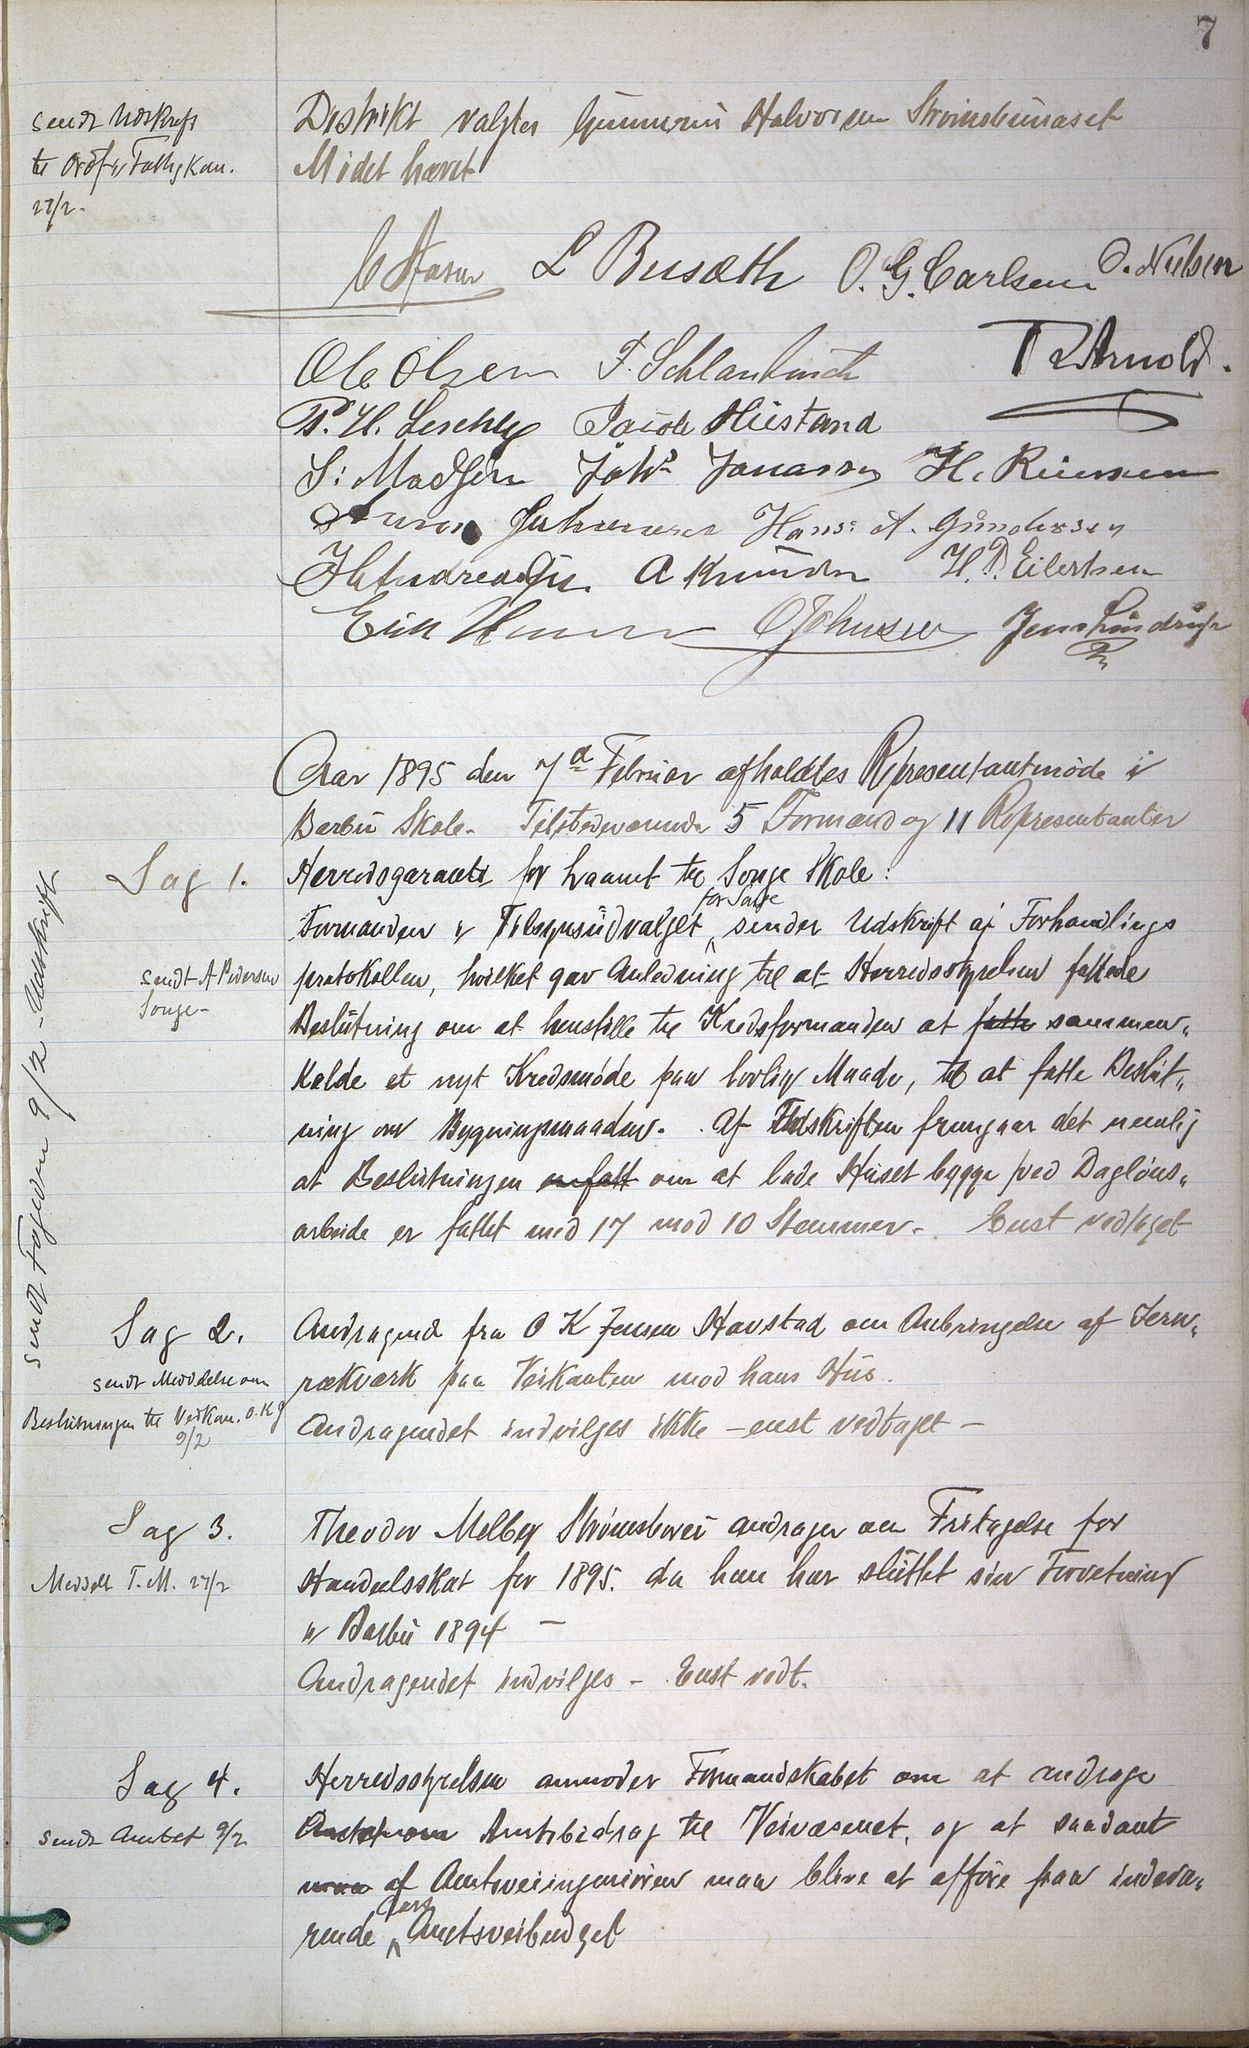 7
sendt Udskrift
til Ordf. i Fattigkom.
27/2.
Distrikt valgtes Gunnerius Halvorsen Strømsbunaset
Mødet hævet
L Busæth O. G. Carlsen O. Nielsen
Ole Olsen F. Schlanbusch Arnold.
P. H. Leschly Jacob Hustand
S: Madsen Johs Jonassen H.
Hans: A. Gundersen
A Knudsen H. P. Eilertsen
O Johnsen Jens Lindrup
Aar 1895 den 7d Februar afholdtes Representantmøde i
Barbu Skole. Tilstedeværende 5 Formænd og 11 Representanter
Sag 1.
Herredsgaranti for Laanet til Songe Skole:
Formanden i Tilsynsudvalget for Samme sender Udskrift af Forhandlings
sendt A Pedersen
Songe-
protokollen, hvilket gav Anledning til at Herredsstyrelsen fattede
Beslutning om at henstille til Kredsformanden at fatte sammen-
kalde et nyt Kredsmøde paa lovlig Maade, til at fatte Beslut-
ning om Bygningsmaaden. Af Udskriften fremgaar det nemlig
at Beslutningen om fatt om at lade Huset bygge ved Dagløns-
arbeide er fattet med 17 mod 10 Stemmer. Enst vedtaget
sendt Fogeden 9/2 - Udskrift
Sag 2.
sendt Meddelse om
Beslutningen til Veikom. O. K J
9/2
Andragende fra O K Jensen Havstad om Anbringelse af Jern-
rækværk paa Veikanten mod hans Hus.
Andragendet indvilges ikke - enst vedtaget -
Sag 3.
Meddelt T. M. 27/2
Theodor Melby Strømsbovei andrager om Fritagelse for
Handelsskat for 1895. da han har sluttet sin Forretning
i Barbu 1894 -
Andragendet indvilges - Enst vedt.
Sag 4.
sendt Amtet 9/2
Herredsstyrelsen anmoder Formandskabet om at andrage
Amtet om Amtsbidrag til Veivæsenet, og at saadant
maa af Amtsveiingeniøren maa blive at opføre paa indevæ-
rende Aars Amtsveibudget